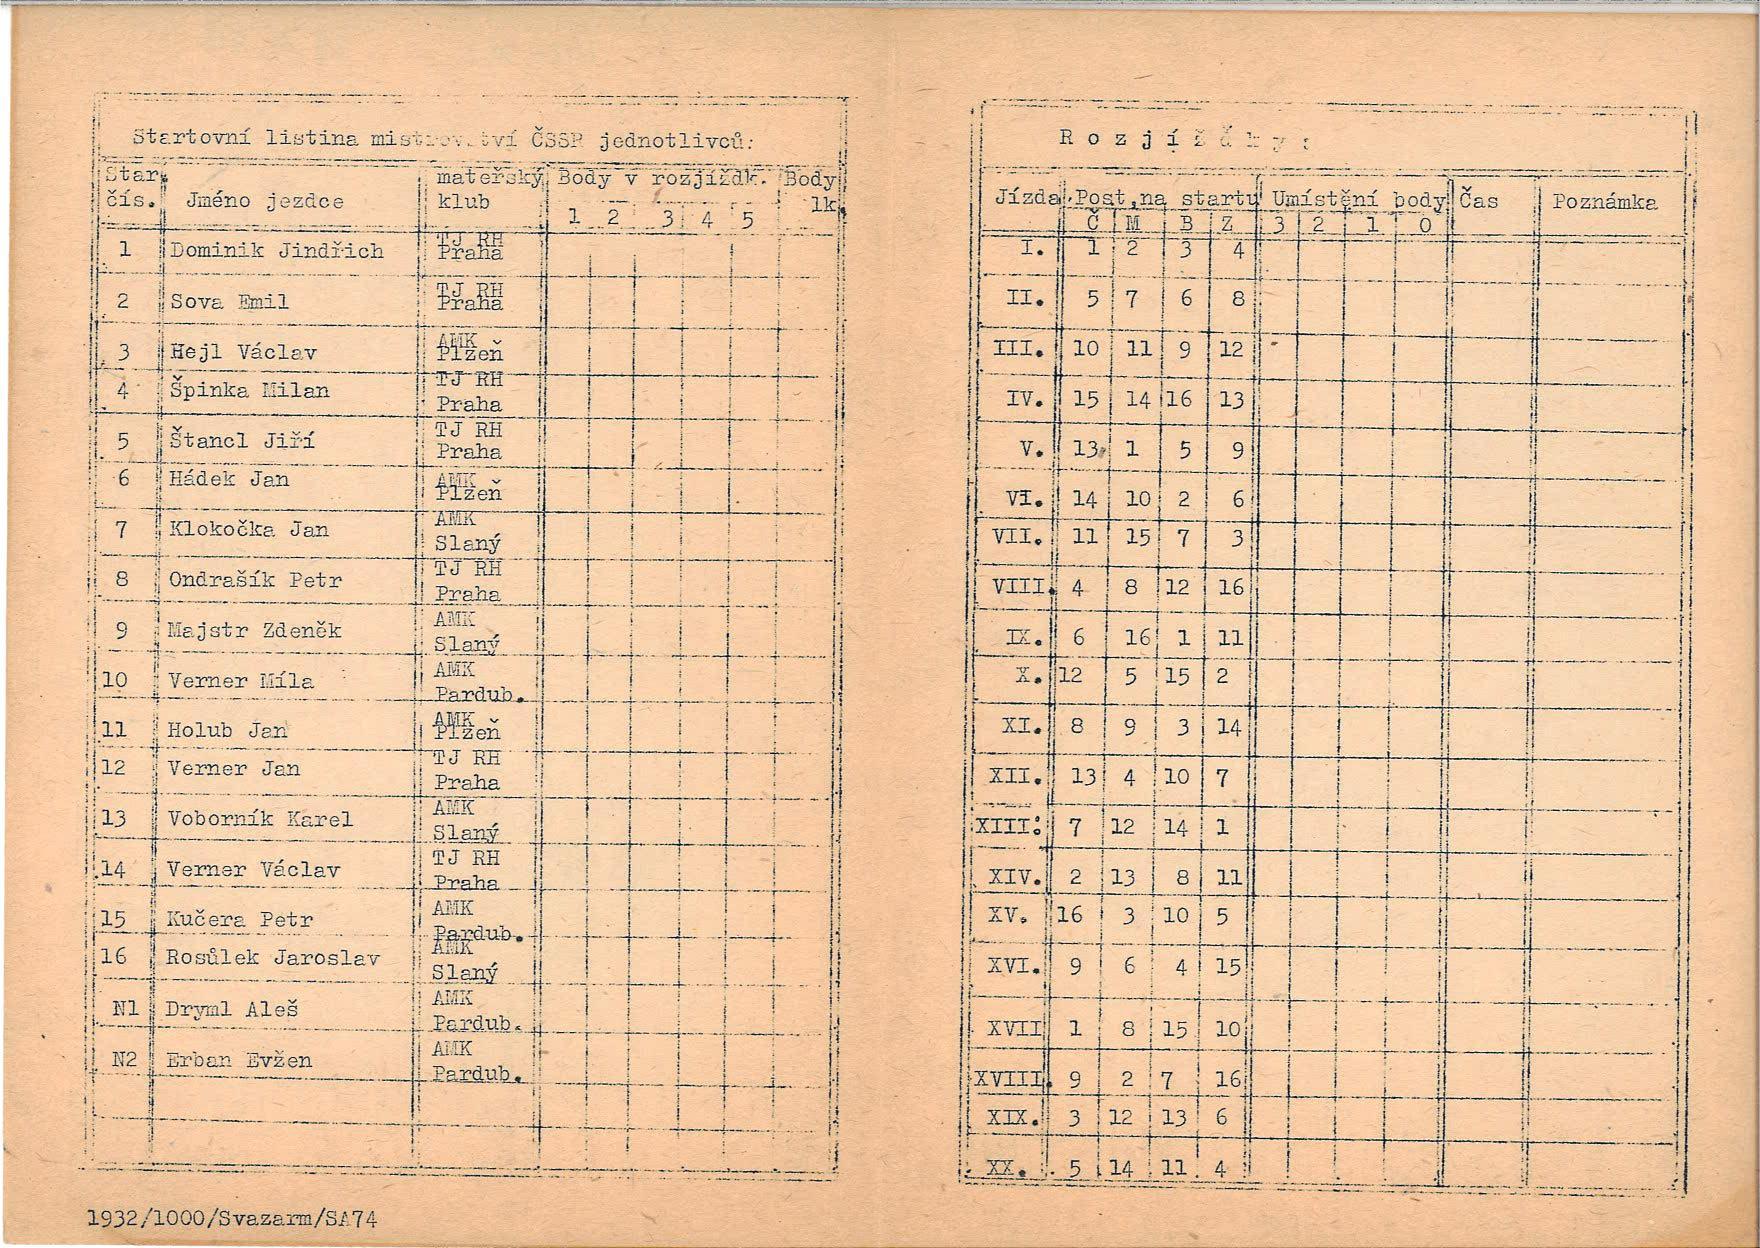 Startovní listina mistrovství ČSSR jednotlivců:
Star. čís. Jméno jezdce mateřský klub Body v rozjížďk. Body lk
1 2 3 4 5
1 Dominik Jindřich TJ RH Praha
2 Sova Emil TJ RH Praha
3 Hejl Václav AMK Plzeň
4 Špinka Milan TJ RH Praha
5 Štancl Jiří TJ RH Praha
6 Hádek Jan AMK Plzeň
7 Klokočka Jan AMK Slaný
8 Ondrašík Petr TJ RH Praha
9 Majstr Zdeněk AMK Slaný
10 Verner Míla AMK Pardub.
11 Holub Jan AMK Plzeň
12 Verner Jan TJ RH Praha
13 Voborník Karel AMK Slaný
14 Verner Václav TJ RH Praha
15 Kučera Petr AMK Pardub.
16 Rosůlek Jaroslav AMK Slaný
N1 Dryml Aleš AMK Pardub.
N2 Erban Evžen AMK Pardub.
1932/1000/Svazarm/SA74
Rozjížďky:
Jízda Post. na startu Umístění body Čas Poznámka
Č M B Z 3 2 1 0
I. 1 2 3 4
II. 5 7 6 8
III. 10 11 9 12
IV. 15 14 16 13
V. 13 1 5 9
VI. 14 10 2 6
VII. 11 15 7 3
VIII. 4 8 12 16
IX. 6 16 1 11
X. 12 5 15 2
XI. 8 9 3 14
XII. 13 4 10 7
XIII. 7 12 14 1
XIV. 2 13 8 11
XV. 16 3 10 5
XVI. 9 6 4 15
XVII 1 8 15 10
XVIII. 9 2 7 16
XIX. 3 12 13 6
XX. 5 14 11 4